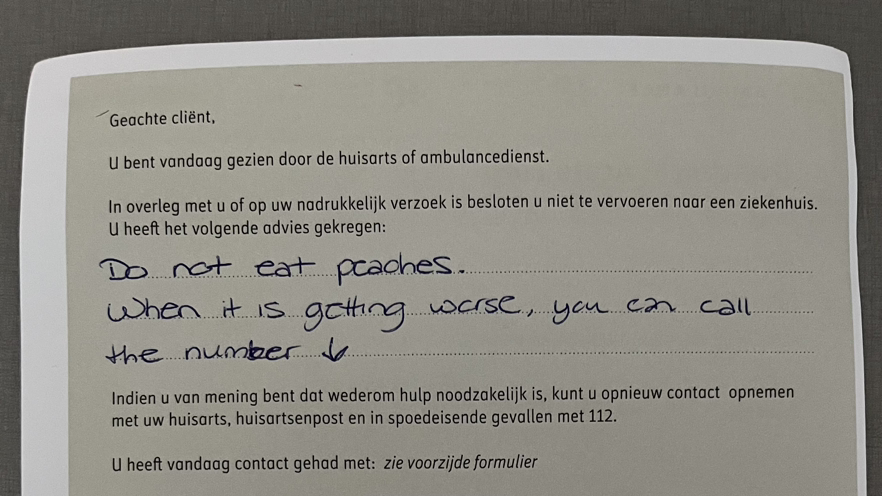 Geachte cliënt,
U bent vandaag gezien door de huisarts of ambulancedienst.
In overleg met u of op uw nadrukkelijk verzoek is besloten u niet te vervoeren naar een ziekenhuis.
U heeft het volgende advies gekregen:
Do not eat peaches.
When it is getting worse, you can call
the number ↓
Indien u van mening bent dat wederom hulp noodzakelijk is, kunt u opnieuw contact opnemen
met uw huisarts, huisartsenpost en in spoedeisende gevallen met 112.
U heeft vandaag contact gehad met: zie voorzijde formulier